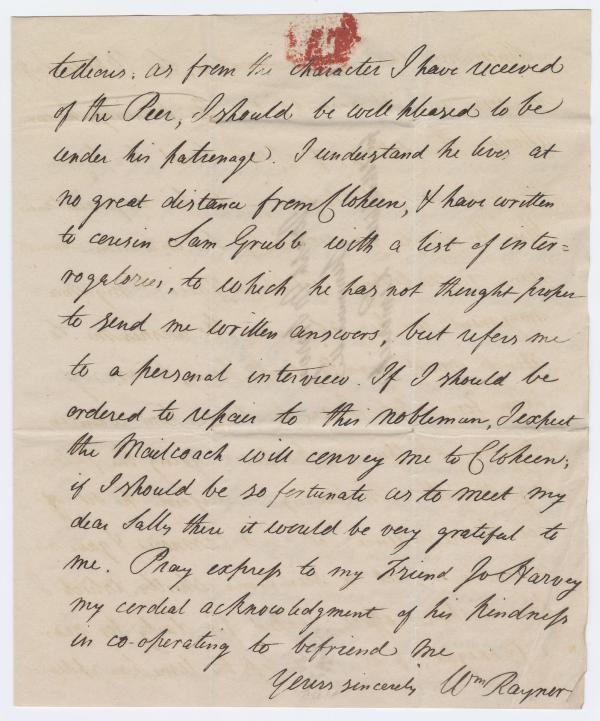 tedious; as from the character I have received
of the Peer, I should be well pleased to be
under his patronage. I understand he lives at
no great distance from Cloheen, & have written
to cousin Sam Grubb with a list of inter=
rogatories, to which he has not thought proper
to send me written answers, but refers me
to a personal interview. If I should be
ordered to repair to this nobleman, I expect
the Mailcoach will convey me to Cloheen;
if I should be so fortunate as to meet my
dear Sally there it would be very grateful to
me. Pray express to my Friend Jo Harvey
my cordial acknowledgment of his kindness
in co-operating to befriend me
Yours sincerely Wm Rayner